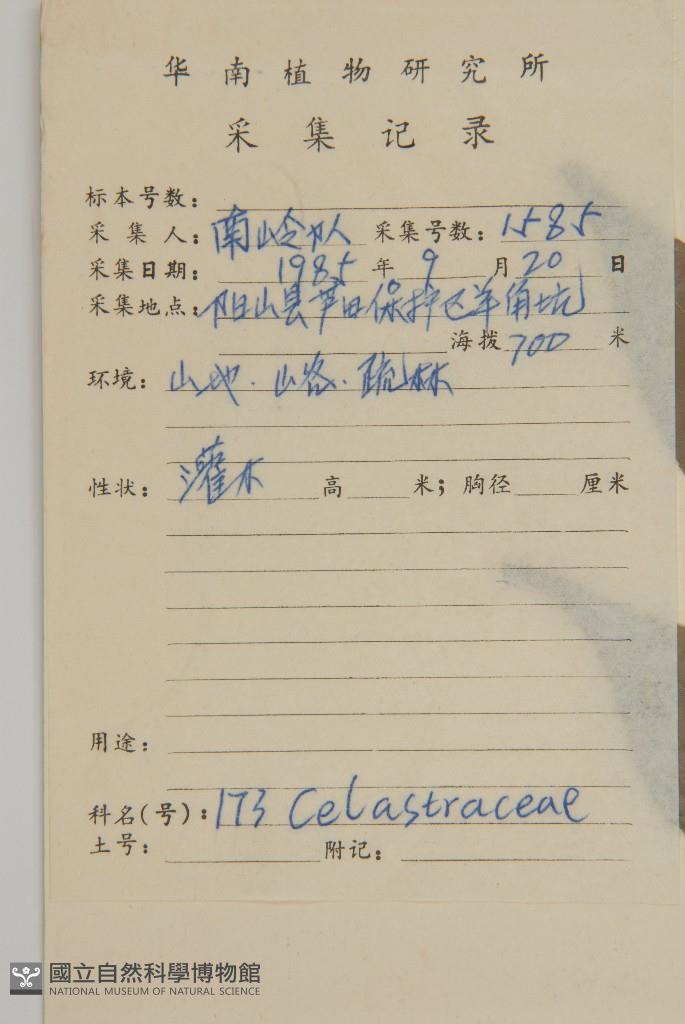 华南植物研究所
采集记录
标本号数：
采集人：南岭队 采集号数：1585
采集日期：1985年9月20日
采集地点：阳山县芦田保护区羊角坑
海拨700米
环境：山地．山谷．疏林
性状：灌木 高 米；胸径 厘米
用途：
科名(号)：173 Celastraceae
土号： 附记：
國立自然科學博物館
NATIONAL MUSEUM OF NATURAL SCIENCE